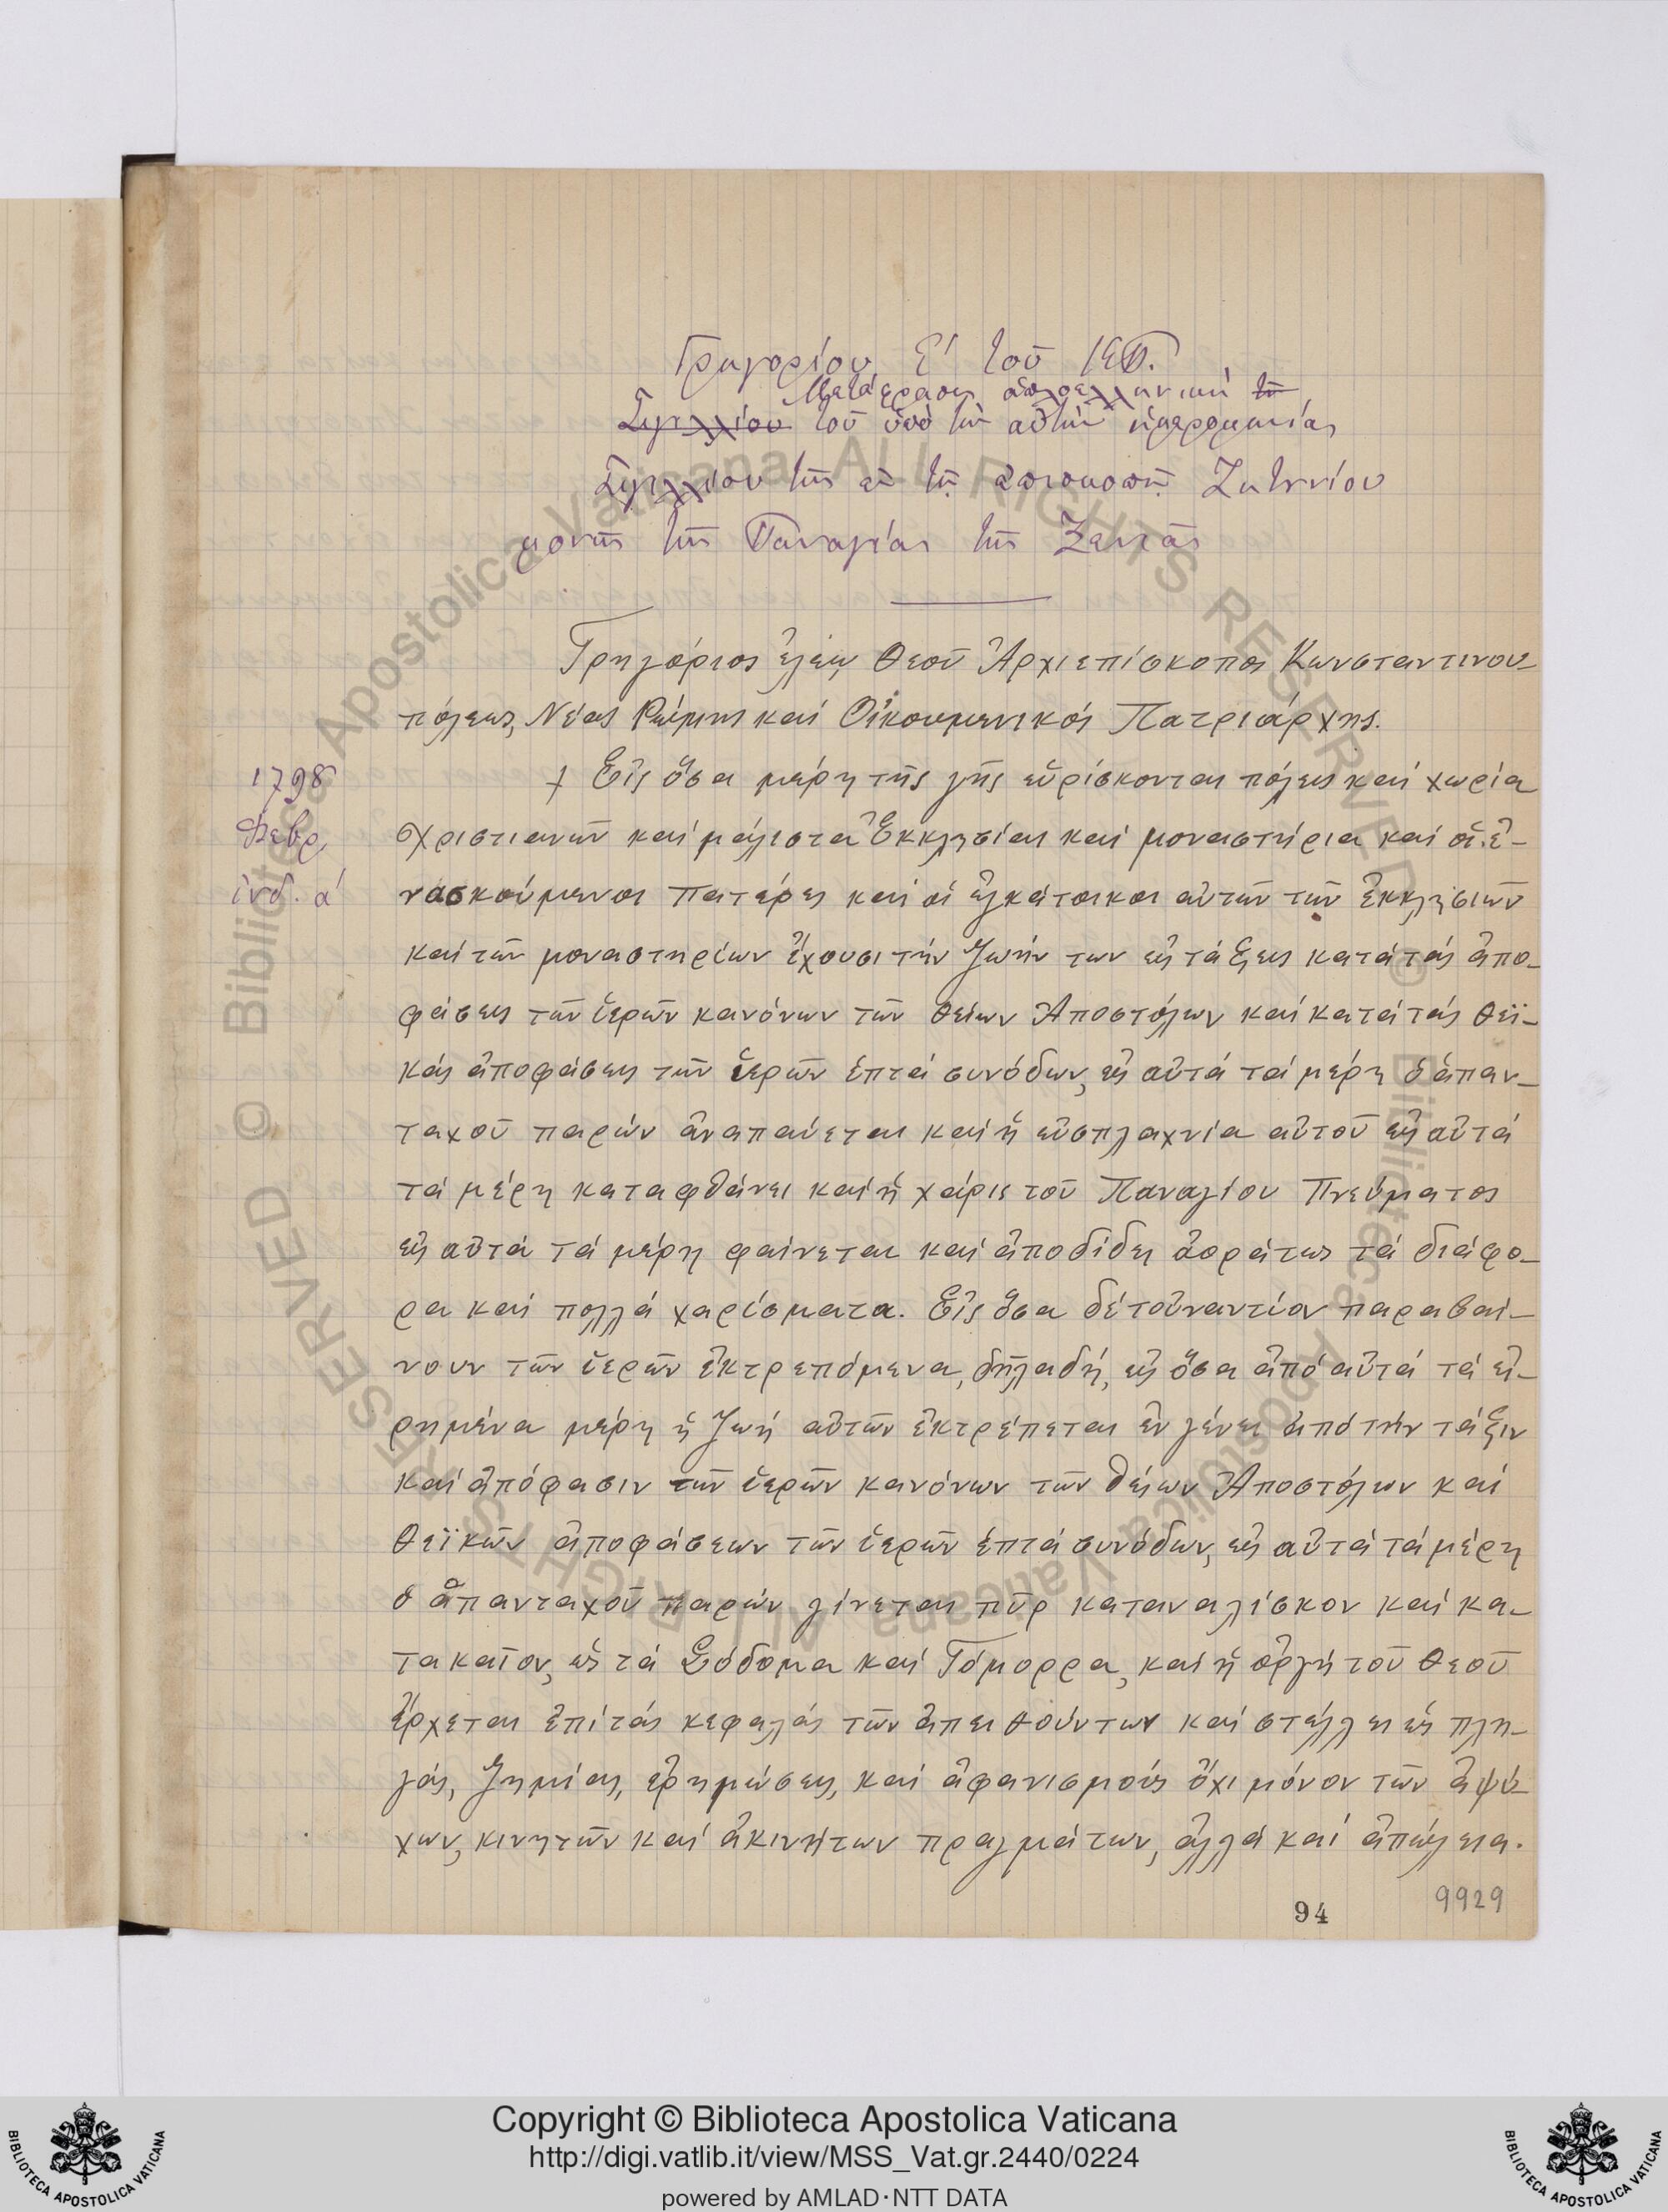 Γρηγορίου Ε΄ τοῦ ΚΠ.
Μετάφρασις ἁπλοελληνικὴ τοῦ
Σιγιλλίου τοῦ ὑπὸ τὴν αὐτὴν ἡμερομηνίαν
Σιγιλλίου τῆς ἐν τῇ ἐπισκοπῇ Ζητουνίου
μονῆς τῆς Παναγίας τῆς Ξενιᾶς
Γρηγόριος ἐλέῳ Θεοῦ Ἀρχιεπίσκοπος Κωνσταντινου-
πόλεως, Νέας Ρώμης καί Οἰκουμενικός Πατριάρχης.
1798
Φεβρ.
ἰνδ. α΄
+ Εἰς ὅσα μέρη τῆς γῆς εὑρίσκονται πόλεις καί χωρία
Χριστιανῶν καί μάλιστα Ἐκκλησίαι καί μοναστήρια καί οἱ ἐ-
νασκούμενοι πατέρες καί οἱ ἐγκάτοικοι αὐτῶν τῶν ἐκκλησιῶν
καί τῶν μοναστηρίων ἔχουσι τήν ζωήν των εἰς τάξεις κατά τάς ἀπο-
φάσεις τῶν ἱερῶν κανόνων τῶν θείων Ἀποστόλων καί κατά τάς θεϊ-
κάς ἀποφάσεις τῶν ἱερῶν ἑπτά συνόδων, εἰς αὐτά τά μέρη ὁ ἁπαν-
ταχοῦ παρών ἀναπαύεται καί ἡ εὐσπλαχνία αὐτοῦ εἰς αὐτά
τά μέρη καταφθάνει καί ἡ χάρις τοῦ Παναγίου Πνεύματος
εἰς αὐτά τά μέρη φαίνεται καί ἀποδίδει ἀοράτως τά διάφο-
ρα καί πολλά χαρίσματα. Εἰς ὅσα δέ τοὐναντίον παραβαί-
νουν τῶν ἱερῶν ἐκτρεπόμενα, δηλαδή, εἰς ὅσα ἀπό αὐτά τά εἰ-
ρημένα μέρη ἡ ζωή αὐτῶν ἐκτρέπεται ἐν γένει ἀπό τήν τάξιν
καί ἀπόφασιν τῶν ἱερῶν κανόνων τῶν θείων Ἀποστόλων καί
θεϊκῶν ἀποφάσεων τῶν ἱερῶν ἑπτά συνόδων, εἰς αὐτά τά μέρη
ὁ ἁπανταχοῦ παρών γίνεται πῦρ καταναλίσκον καί κα-
τακαῖον, ὡς τά Σόδομα καί Γόμορρα, καί ἡ ὀργή τοῦ Θεοῦ
ἔρχεται ἐπί τάς κεφαλάς τῶν ἀπειθούντων καί στέλλει εἰς πλη-
γάς, ζημίας, ἐρημώσεις, καί ἀφανισμούς ὄχι μόνον τῶν ἀψύ-
χων, κινητῶν καί ἀκινήτων πραγμάτων, ἀλλά καί ἀπώλεια.
94
9929
Copyright © Biblioteca Apostolica Vaticana
http://digi.vatlib.it/view/MSS_Vat.gr.2440/0224
powered by AMLAD·NTT DATA